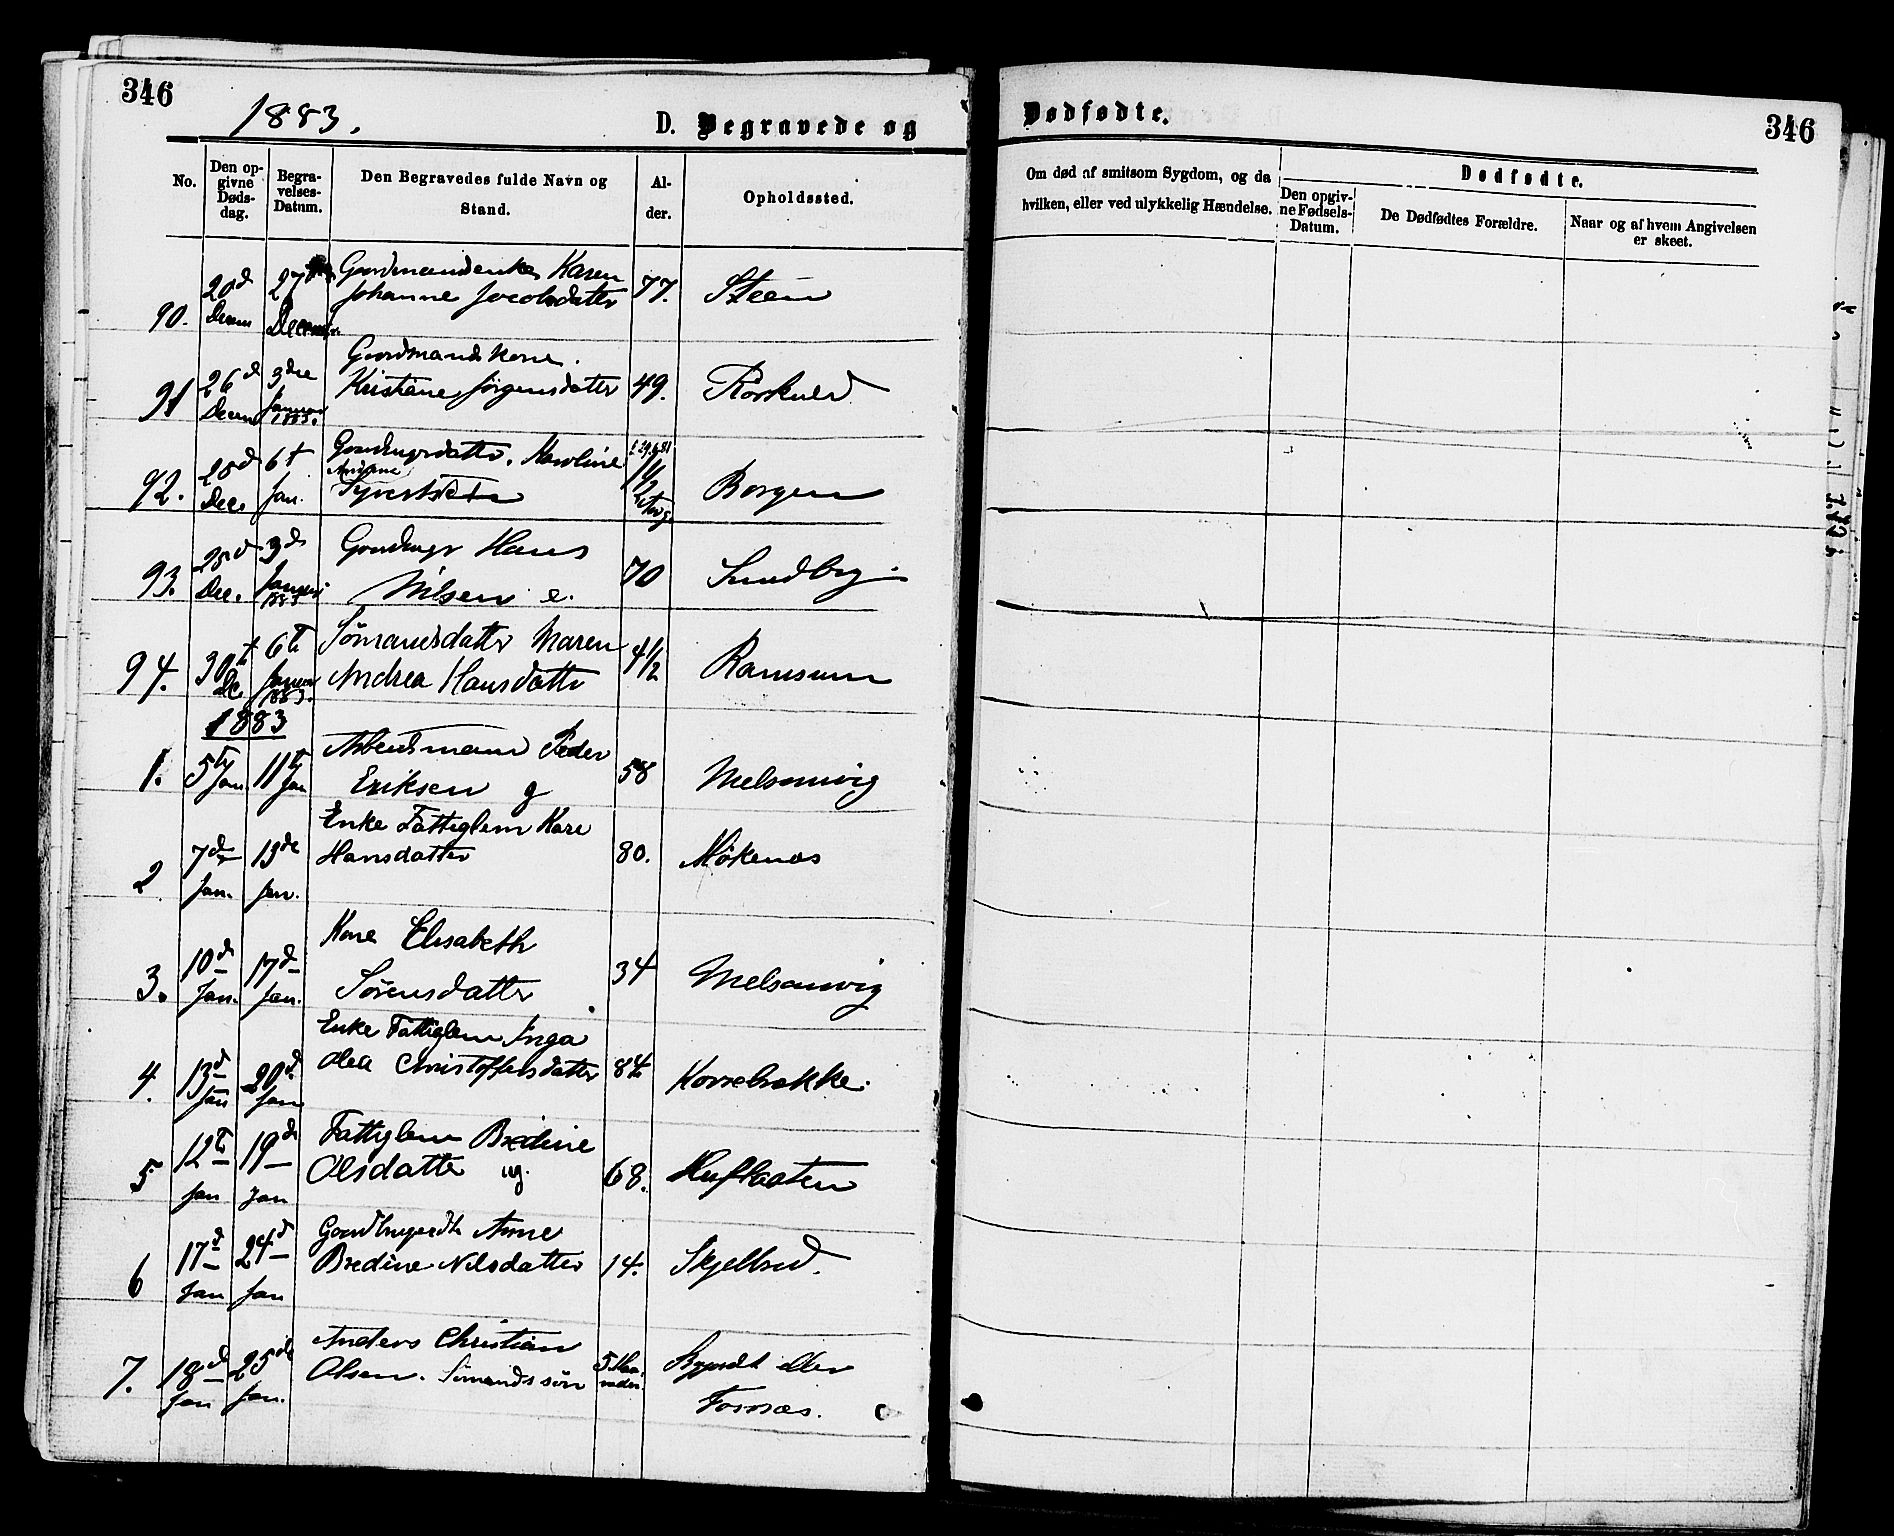 346
1883.
D. Begravede og
No.
Den op-
givne
Døds-
dag.
Begra-
velses-
Datum.
Den Begravedes fulde Navn og
Stand.
Al-
der.
Opholdssted.
90. 20d Decem 27 Decem Gaardmandenke Karen
Johanne Jacobsdatter 77. Steen
91 26d Decem 3die Januar 1883. Gaardmandskone.
Kristiane Jørgensdatter 49.
92. 28d Dec. 6t Jan. Karoline
1/2 Borgen
93. 25d Dec. 3d Januar 1883 Hans
Nilsen e. 70 Sundby
94. 30t De. 6te Januar 1883. Sømandsdatter Maren
Andrea Hansdatter 4 1/2 Ramsum
1883
1. 5t Jan 11t Jan Arbeidsmand Peder
Eriksen g 58 Melsomvig
2 7de Jan. 13de Jan. Enke Fattiglem Kari
Hansdatter 80. Møkenæs
3. 10d Jan. 17d Jan. Kone Elisabeth
Sørensdatter 34 Melsomvig
4. 13d Jan 20d Jan Enke Fattiglem Inga
Olea Christoffersdatter 84 Korsebække.
5 12t Jan 19d Jan Fattiglem Bredine
Olsdatter ug. 68.
6 17d Jan 24d Jan Anne
Bredine Nilsdatter 14. Skjelbred.
7. 18d Jan 25de Jan. Anders Christian
Olsen. Sømandssøn 5 Maa-
neder. eller
Fornæs.
Dødfødte.
346
Om død af smitsom Sygdom, og da
hvilken, eller ved ulykkelig Hændelse.
Dødfødte.
Den opgiv-
ne Fødsels-
Datum.
De Dødfødtes Forældre.
Naar og af hvem Angivelsen
er skeet.